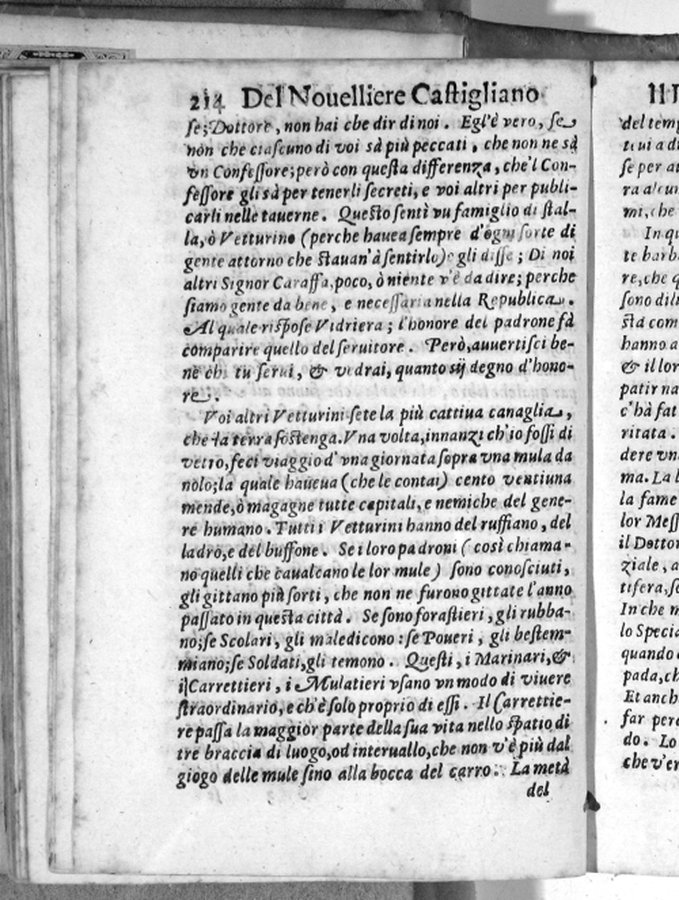 214 Del Nouelliere Castigliano
se; Dottore, non hai che dir di noi. Egl'è vero, se
non che ciascuno di voi sà più peccati, che non ne sà
vn Confessore; però con questa differenza, che'l Con-
fessore gli sà per tenerli secreti, e voi altri per publi-
carli nelle tauerne. Questo sentì vu famiglio di stal-
la, ò Vetturino (perche hauea sempre d'ogni sorte di
gente attorno che stauan'à sentirlo) e gli disse; Di noi
altri Signor Caraffa, poco, ò niente v'è da dire; perche
siamo gente da bene, e necessaria nella Republica.
Al quale rispose Vidriera; l'honore del padrone fà
comparire quello del seruitore. Però, auuertisci be-
ne chi tu serui, & vedrai, quanto sij degno d'hono-
re.
Voi altri Vetturini sete la più cattiua canaglia,
che la terra sostenga. Vna volta, innanzi ch'io fossi di
vetro, feci viaggio d'vna giornata sopra vna mula da
nolo; la quale haueua (che le contai) cento ventiuna
mende, ò magagne tutte capitali, e nemiche del gene-
re humano. Tutti i Vetturini hanno del ruffiano, del
ladro, e del buffone. Se i loro padroni (così chiama-
no quelli che caualcano le lor mule) sono conosciuti,
gli gittano più sorti, che non ne furono gittate l'anno
passato in questa città. Se sono forastieri, gli rubba-
no; se Scolari, gli maledicono: se Poueri, gli bestem-
miano; se Soldati, gli temono. Questi, i Marinari, &
i Carrettieri, i Mulatieri vsano vn modo di viuere
straordinario, e ch'è solo proprio di essi. Il Carrettie-
re passa la maggior parte della sua vita nello spatio di
tre braccia di luogo, od interuallo, che non v'è più dal
giogo delle mule sino alla bocca del carro. La metà
del
Il
del temp
ti ui a di
se per at
ra alcun
mi, che
In qu
te barb
re, che q
sono dili
stà com
hanno a
& il lor
patir na
c'hà fat
ritata.
dere vn
ma. La l
la fame
lor Mess
il Dottor
ziale, a
tifera, se
In che m
lo Specia
quando
pada, ch
Et anch
far per
do. Lo
che v'er